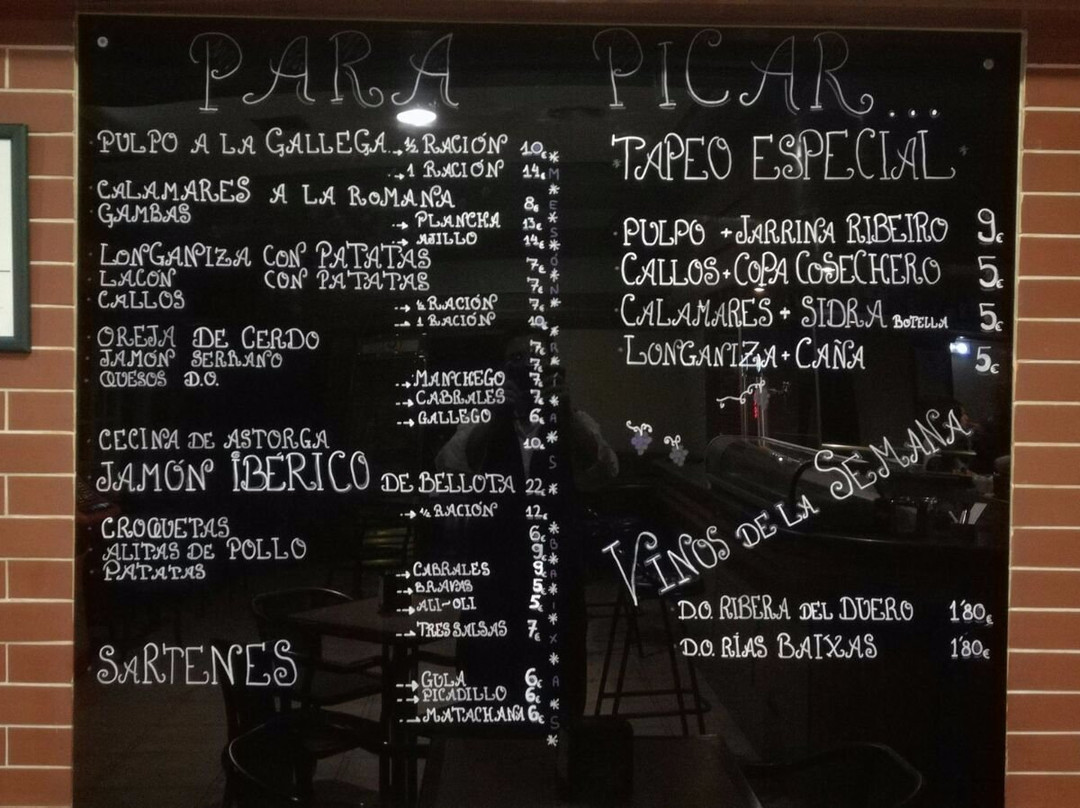 PARA PICAR...
PULPO A LA GALLEGA.. ½ RACIÓN 10€
1 RACIÓN 14€
CALAMARES A LA ROMANA 8€
GAMBAS PLANCHA 13€
AJILLO 14€
LONGANIZA CON PATATAS 7€
LACÓN CON PATATAS 7€
CALLOS ½ RACIÓN 7€
1 RACIÓN 10€
OREJA DE CERDO 7€
JAMÓN SERRANO 7€
QUESOS D.O. MANCHEGO 7€
CABRALES 7€
GALLEGO 6€
CECINA DE ASTORGA 10€
JAMÓN IBÉRICO DE BELLOTA 22€
½ RACIÓN 12€
CROQUETAS 6€
ALITAS DE POLLO 9€
PATATAS CABRALES 9€
BRAVAS 5€
ALI-OLI 5€
TRES SALSAS 7€
SARTENES GULA 6€
PICADILLO 6€
MATACHANA 6€
* MESÓN * RÍAS * BAIXAS *
TAPEO ESPECIAL
PULPO + JARRINA RIBEIRO 9€
CALLOS + COPA COSECHERO 5€
CALAMARES + SIDRA BOTELLA 5€
LONGANIZA + CAÑA 5€
VINOS DE LA SEMANA
D.O. RIBERA DEL DUERO 1'80€
D.O. RÍAS BAIXAS 1'80€